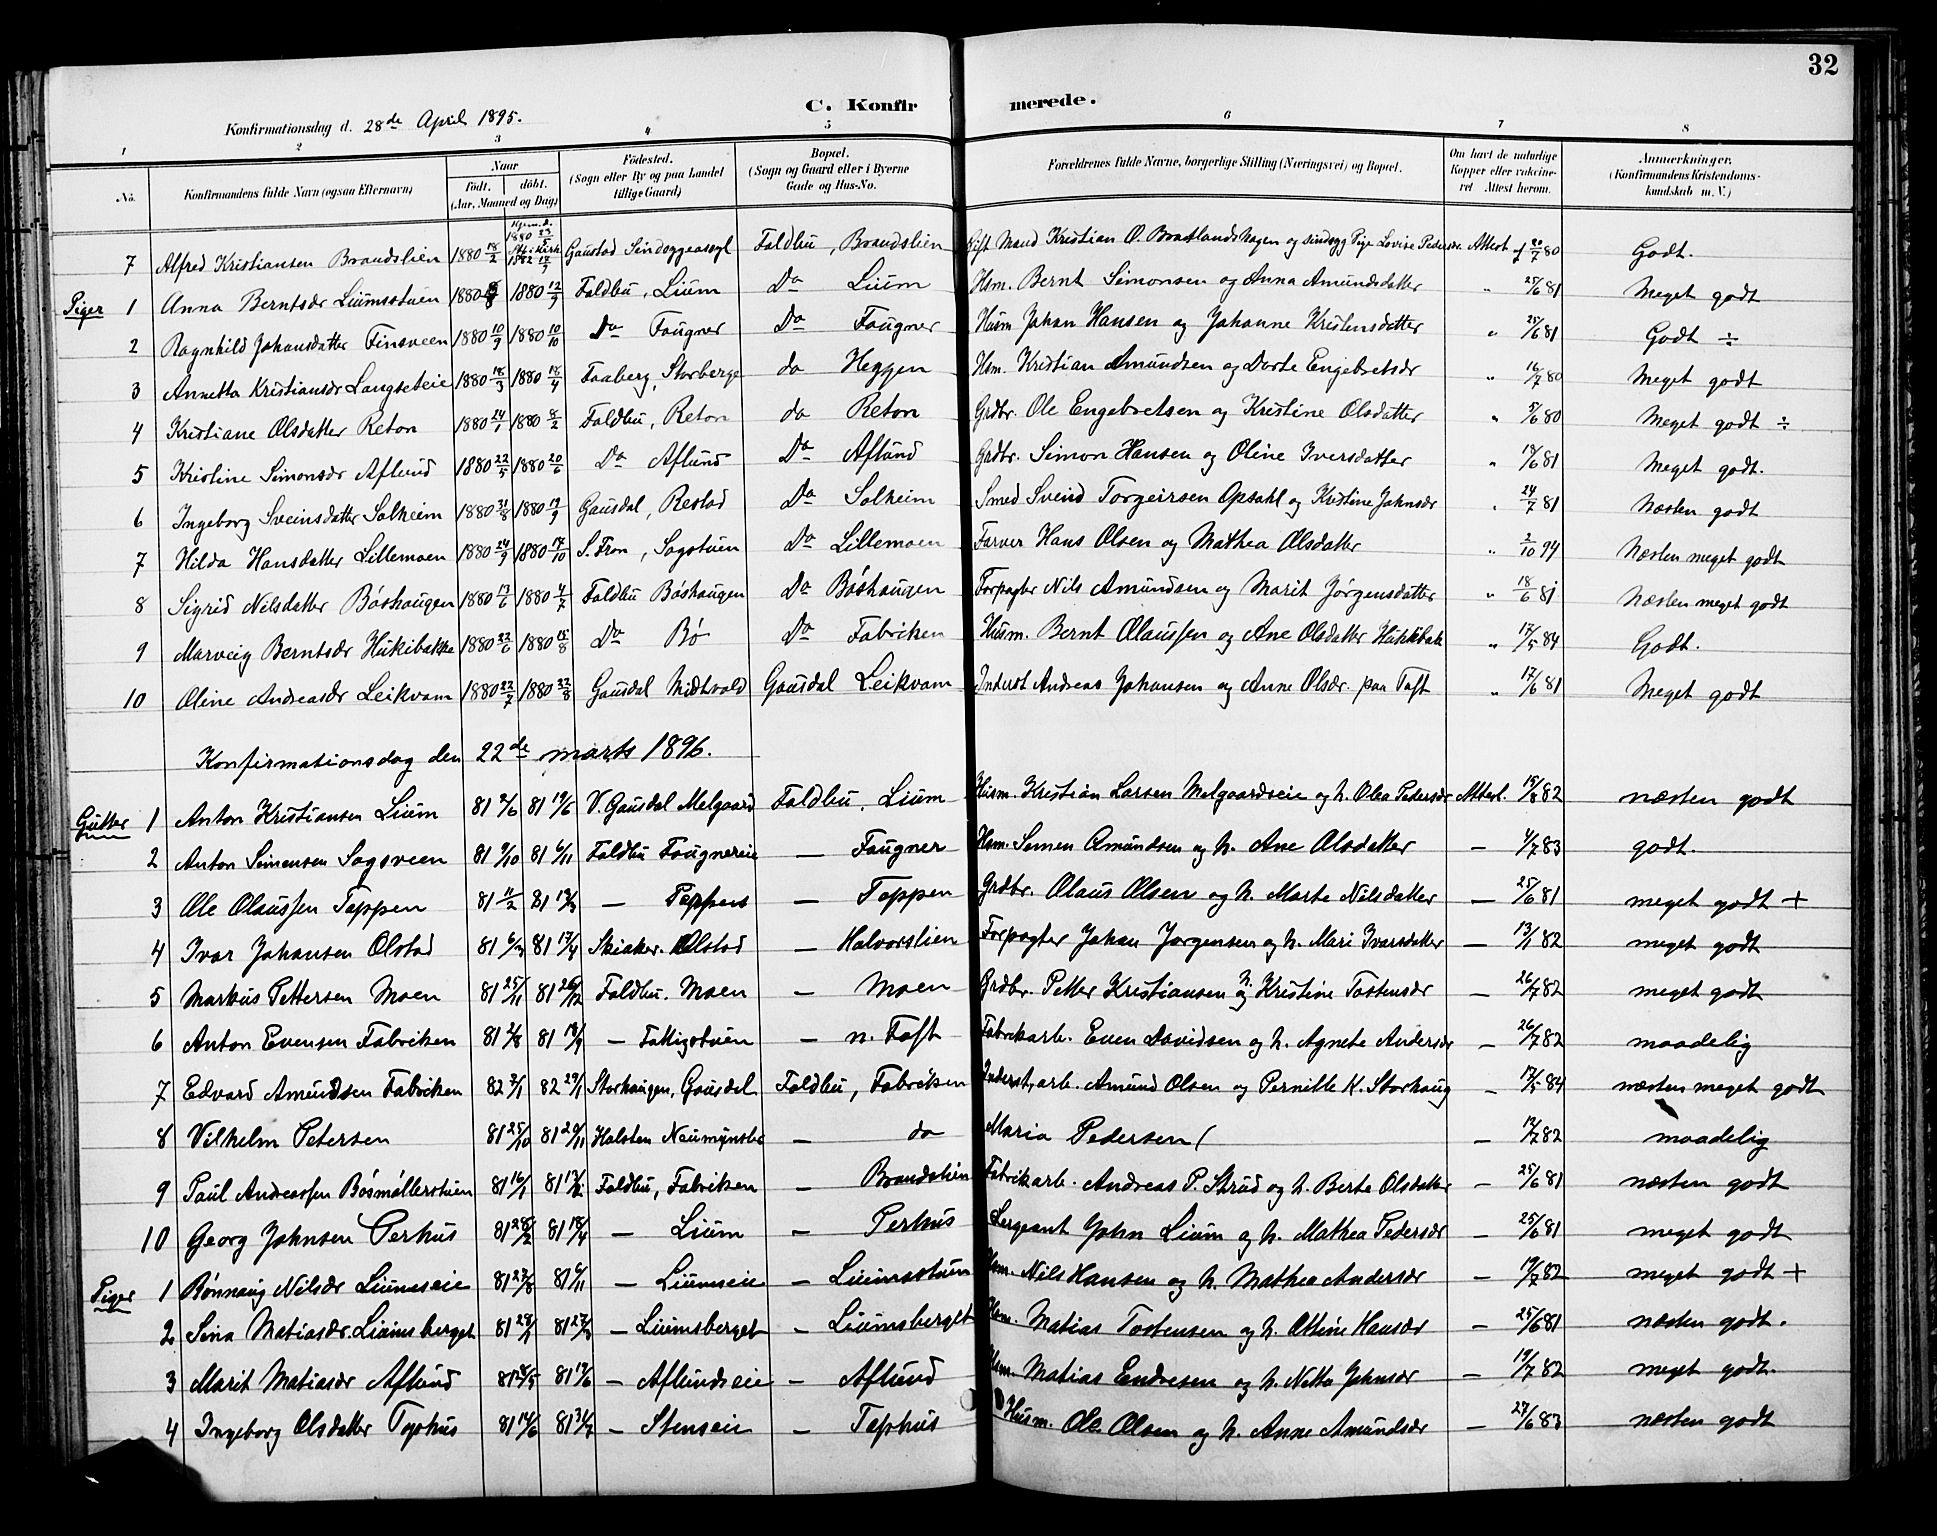 32
C. Konfirmerede.
Konfirmationsdag d. 28de April 1895.
1 2 3 4 5 6 7 8
No. Konfirmandens fulde Navn (ogsaa Efternavn) Naar født. døbt. (Aar, Maaned og Dag) Fødested. (Sogn eller By og paa Landet tillige Gaard) Bopæl. (Sogn og Gaard eller i Byerne Gade og Hus-No. Forældrenes fulde Navne, borgerlige Stilling (Næringsvei) og Bopæl. Om havt de naturlige Kopper eller vaccineret Attest herom. Anmærkninger. (Konfirmandens Kristendomskundskab m. V.)
7 Alfred Kristiansen Brandslien 1880 18/2 Gaustad Sindssygeasyl Foldbu, Brandslien Gift Mand Kristian O. Brattlandshagen og sindssyg Pige Lovise Pedersdr. Attest af /7 80 Godt.
Piger 1 Anna Berntsdr Liumsstuen 1880 1880 12/9 Foldbu, Lium Do Lium Hsm. Bernt Simonsen og Anna Amundsdatter " 25/6 81 Meget godt
2 Ragnhild Johansdatter Finsveen 1880 10/9 1880 10/10 Do Fougner Do Fougner Husm Johan Hansen og Johanne Kristensdatter " 25/6 81 Godt ÷
3 Annetta Kristiansdr Langseteie 1880 18/3 1880 18/4 Faaberg, Storberge do Heggen Hsm. Kristian Amundsen og Dorte Engebretsdr " 16/7 80 Meget godt
4 Kristiane Olsdatter Reton 1880 24/1 1880 8/2 Foldbu, Reton do Reton Grdbr. Ole Engebretsen og Kristine Olsdatter " 5/6 80 Meget godt ÷
5 Kristine Simonsdr Aflund 1880 22/5 1880 20/6 Do Aflund Do Aflund Grdbr. Simon Hansen og Oline Iversdatter " /6 81 Meget godt.
6 Ingeborg Sveinsdatter Solheim 1880 31/8 1880 19/9 Gausdal, Restad Do Solheim Smed Svend Torgeirsen Opsahl og Kristine Johnsdr " 24/7 81 Næsten godt
7 Hilda Hansdatter Lillemoen 1880 24/9 1880 17/10 S. Fron, Sagstuen Do Lillemoen Farver Hans Olsen og Mathea Olsdatter " 2/10 94 Næsten meget godt
8 Sigrid Nilsdatter Bøshaugen 1880 13/6 1880 4/7 Foldbu Bøshaugen Do Bøshaugen Forpagter Nils Amundsen og Marit Jørgensdatter " 18/6 81 Næsten meget godt
9 Marveig Berntsdr Hukibakke 1880 22/6 1880 15/8 Do Bø Do Fabriken Husm. Bernt Olaussen og Ane Olsdatter Hukkibak " 17/5 84 Godt.
10 Oline Andreasdr Leikvam 1880 22/7 1880 22/8 Gausdal Midtvold Gausdal Leikvam Inderst Andreas Johansen og Anne Olsdr. paa Toft " 17/6 81 Meget godt
Konfirmationsdag den 22de marts 1896.
Gutter 1 Anton Kristiansen Lium 81 2/6 81 19/6 V. Gausdal Melgaard Foldbu, Lium Husm. Kristian Larsen Melgaardseie og h. Olea Pedersdr Attest. 15/8 82 næsten godt
2 Anton Simensen Sagsveen 81 9/10 81 6/11 Foldbu Fougnereie — Fougner Hsm. Simen Amundsen og h. Ane Olsdatter — 4/7 83 godt.
3 Ole Olaussen Toppen 81 11/2 81 13/3 — Toppen — Toppen Grdbr. Olaus Olsen og h. Marte Nilsdatter — 25/6 81 meget godt +
4 Ivar Johansen Olstad 81 6/3 81 17/4 Skiaker. Olstad — Halvorslien Forpagter Johan Jørgensen og h. Mari Ivarsdatter — 13/1 82 meget godt
5 Markus Pettersen Moen 81 25/11 81 26/12 Foldbu. Moen — Moen Grdbr. Petter Kristiansen og h. Kristine Tostensdr — 26/7 82 meget godt
6 Anton Evensen Fabriken 81 2/8 81 18/9 — Fattigstuen — n. Toft Fabrikarb. Even Davidsen og h. Agnete Andersdr — 26/7 82 maadelig
7 Edvard Amundsen Fabriken 82 3/1 82 29/1 Storhaugen, Gausdal Foldbu, Fabriken Inderst, arb. Amund Olsen og Pernille K. Storhaug — 17/5 84 næsten meget godt
8 Vilhelm Petersen 81 25/10 81 20/11 Holsten Neumynster — do Maria Pedersen ( — /7 82 maadelig
9 Paul Andreassen Bøsmøllerstuen 81 16/1 81 13/2 Foldbu, Fabriken — Brandslien Fabrikarb. Andreas P. Strud og h. Berte Olsdatter — 25/6 81 næsten godt
10 Georg Johnsen Perhus 81 28/2 81 18/4 — Lium — Perhus Sergeant John Lium og h. Mathea Pedersdr — 25/6 81 meget godt
Piger 1 Rønnaug Nilsdr Liumseie 81 27/8 81 6/11 — Liumseie — Liumsstuen Hsm. Nils Hansen og h. Mathea Andersdr — 19/7 82 meget godt +
2 Sina Matiasdr. Liumsberget 81 81 27/3 — Liumsberget — Liumsberget Hsm. Matias Tostensen og h. Ottine Hansdr — 25/6 81 næsten godt.
3 Marit Matiasdr Aflund 81 81 19/6 — Aflundseie — Aflund Hsm. Matias Endresen og h. Netta Johnsdr — 19/7 82 meget godt.
4 Ingeborg Olsdatter Tophus 81 14/6 81 31/7 — Stenseie — Tophus Husm. Ole Olsen og h. Anne Amundsdr — 27/6 83 næsten godt